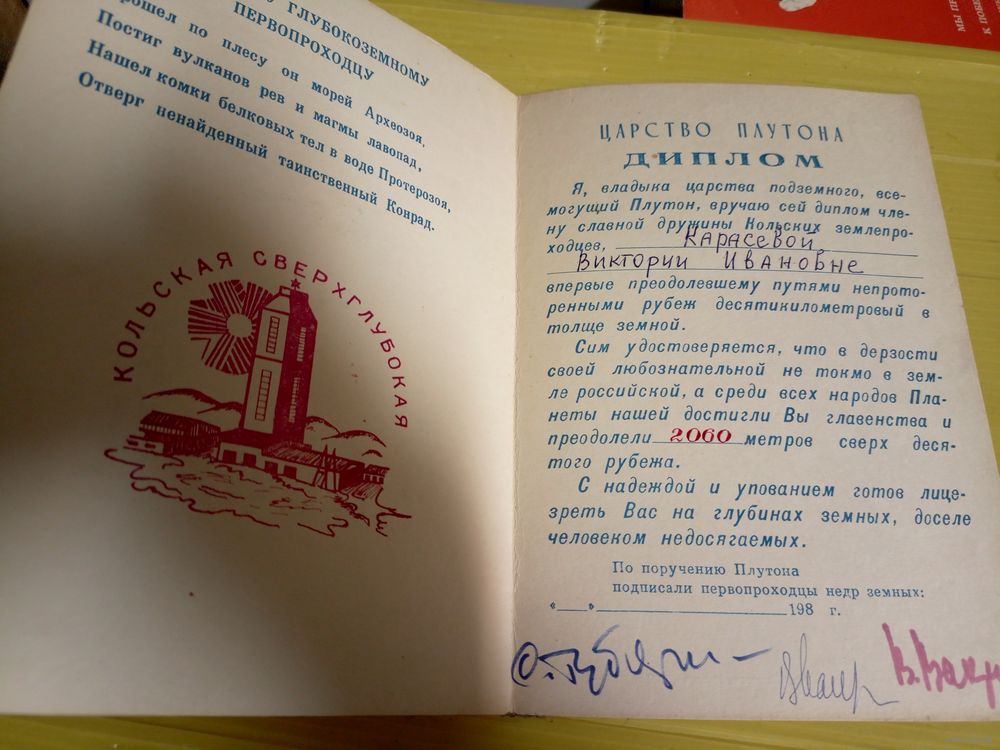 ГЛУБОКОЗЕМНОМУ
ПЕРВОПРОХОДЦУ
по плесу он морей Археозоя,
Постиг вулканов рев и магмы лавопад,
Нашел комки белковых тел в воде Протерозоя,
Отверг ненайденный таинственный Конрад.
КОЛЬСКАЯ СВЕРХГЛУБОКАЯ
ЦАРСТВО ПЛУТОНА
ДИПЛОМ
Я, владыка царства подземного, все-
могущий Плутон, вручаю сей диплом чле-
ну славной дружины Кольских землепро-
ходцев, Карасевой
Виктории Ивановне
впервые преодолевшему путями непрото-
ренными рубеж десятикилометровый в
толще земной.
Сим удостоверяется, что в дерзости
своей любознательной не токмо в зем-
ле российской, а среди всех народов Пла-
неты нашей достигли Вы главенства и
преодолели 2060 метров сверх деся-
того рубежа.
С надеждой и упованием готов лице-
зреть Вас на глубинах земных, доселе
человеком недосягаемых.
По поручению Плутона
подписали первопроходцы недр земных:
«___»______________198 г.